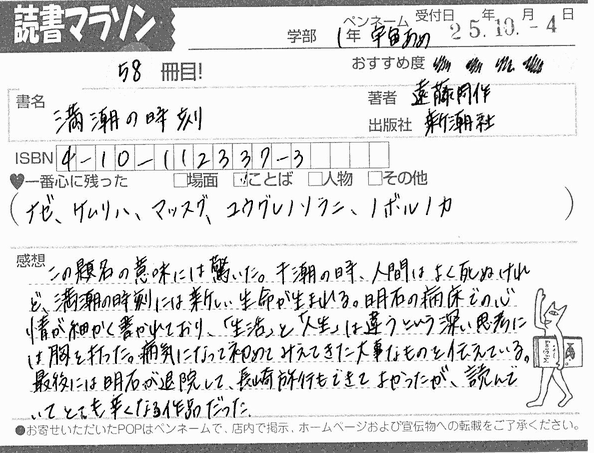 読書マラソン
学部 1年 ペンネーム 宇宙あめ 受付日 25年10月-4日
58 冊目!
おすすめ度
書名 満潮の時刻
著者 遠藤周作
出版社 新潮社
ISBN 4-10-112337-3
♥一番心に残った □場面 ☑ことば □人物 □その他
(ナゼ、ケムリハ、マッスグ、ユウグレノソラニ、ノボルノカ)
感想 この題名の意味には驚いた。干潮の時、人間はよく死ぬけれ
ど、満潮の時刻には新しい生命が生まれる。明石の病床での心
情が細かく書かれており、「生活」と「人生」は違うという深い思考に
は胸を打った。病気になって初めてみえてきた大事なものを伝えている。
最後には明石が退院して、長崎旅行もできてよかったが、読んで
いてとても辛くなる作品だった。
●お寄せいただいたPOPはペンネームで、店内で掲示、ホームページおよび宣伝物への転載をご了承ください。